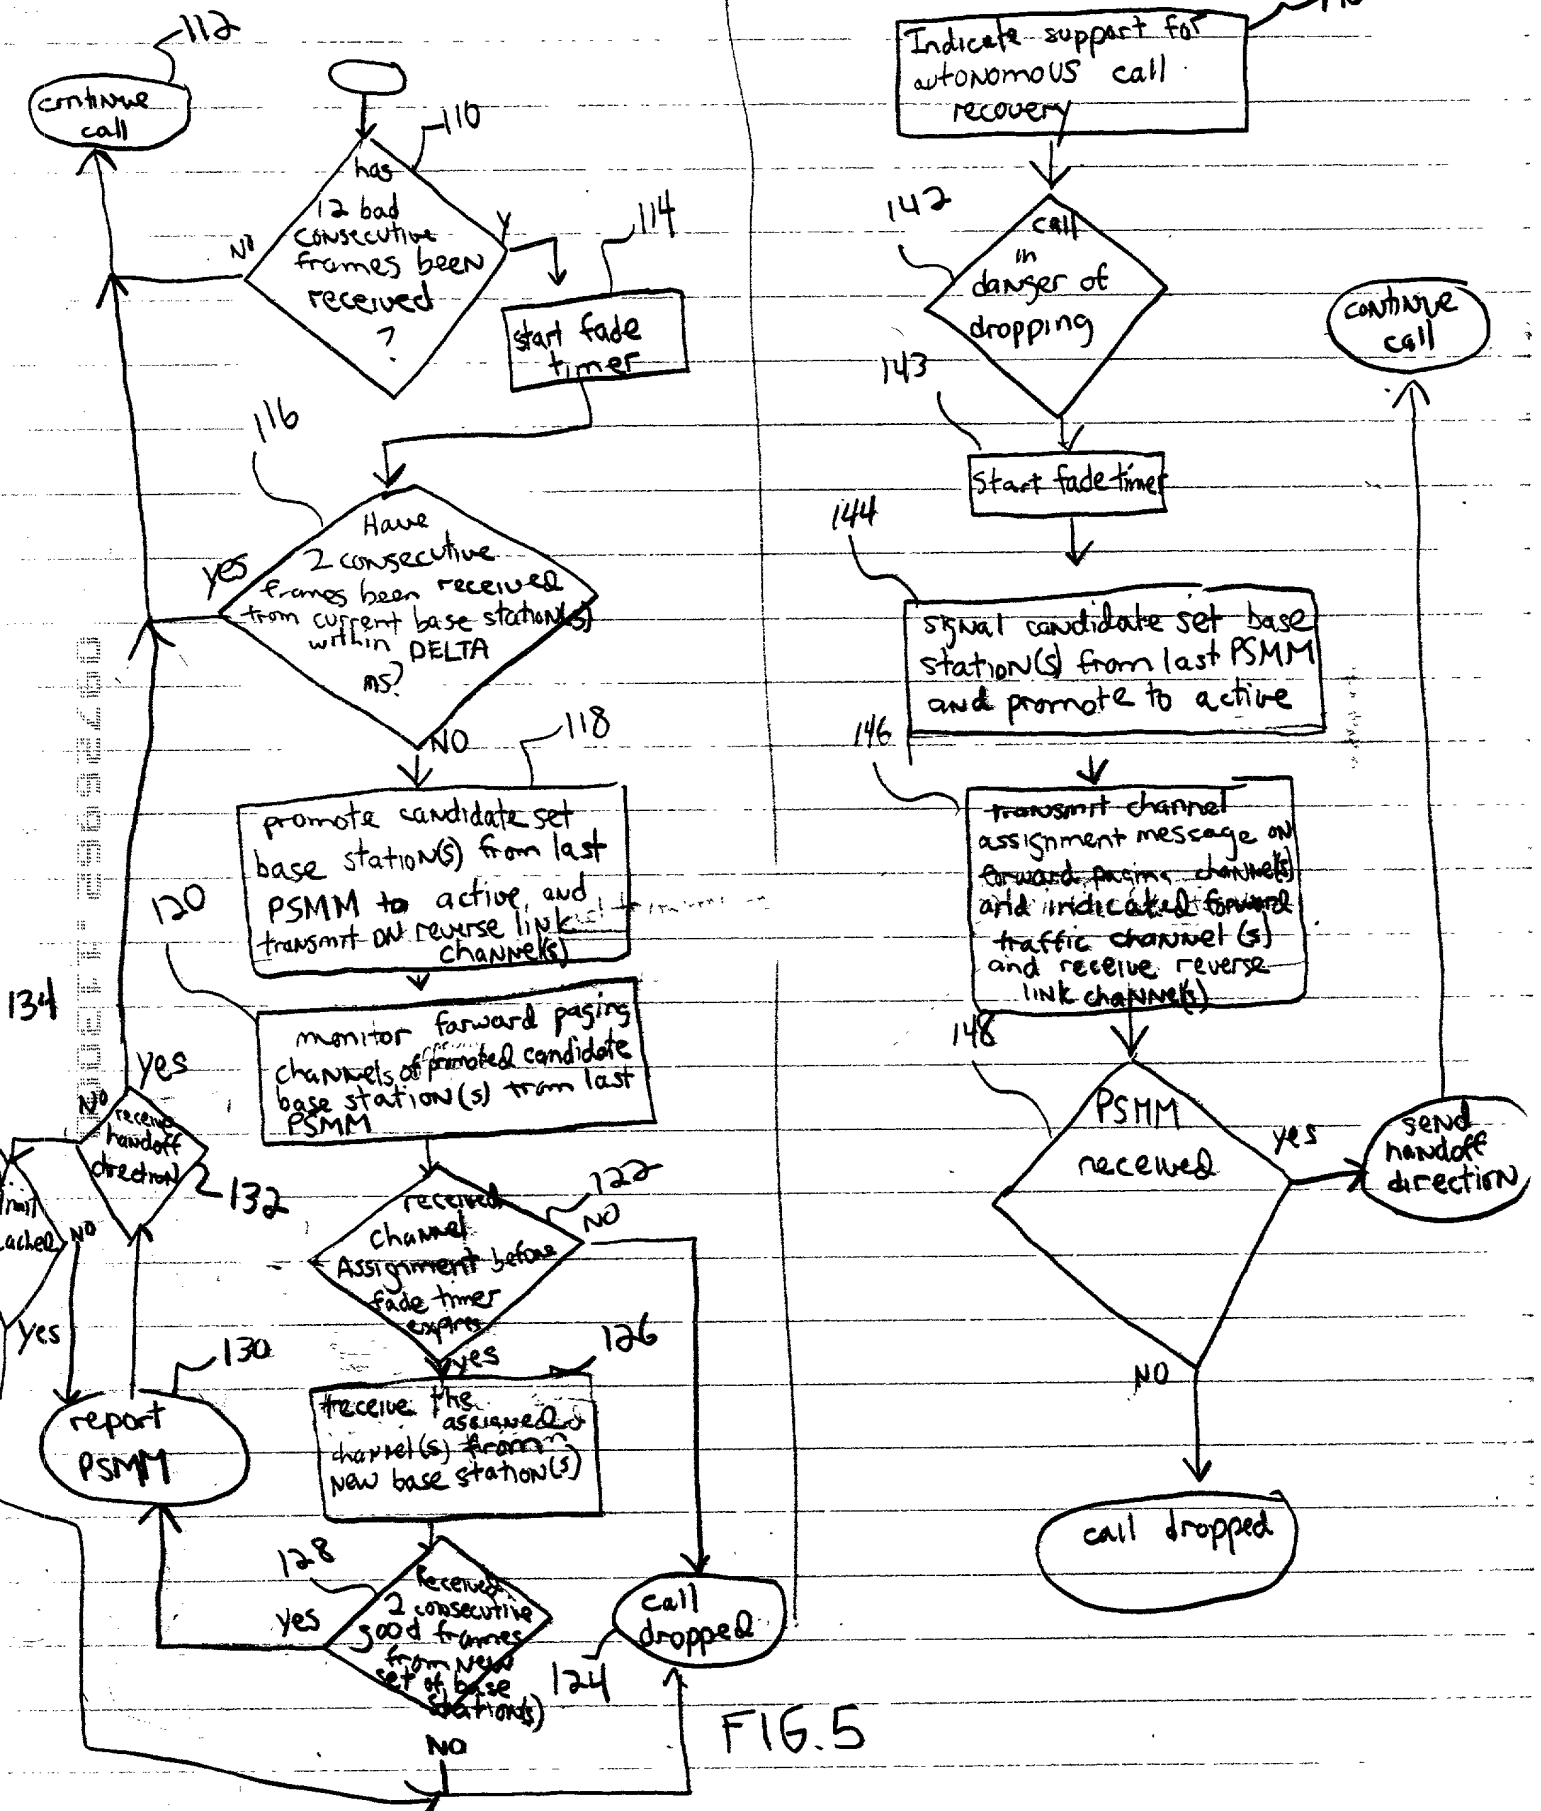 112
continue
call
110
has
12 bad
consecutive
frames been
received
?
No
Y
114
start fade
timer
116
Have
2 consecutive
frames been received
from current base station(s)
within DELTA
ms?
yes
NO
118
promote candidate set
base station(s) from last
PSMM to active, and
transmit on reverse link
channel(s)
120
monitor forward paging
channels of promoted candidate
base station(s) from last
PSMM
122
received
channel
Assignment before
fade timer
expires
NO
yes
126
receive the
assigned
channel(s) from
new base station(s)
128
Received
2 consecutive
good frames
from new
set of base
station(s)
yes
No
124
call
dropped
130
report
PSMM
132
receive
handoff
direction
yes
No
134
NO
yes
Indicate support for
autonomous call
recovery
142
call
in
danger of
dropping
143
Start fade timer
144
signal candidate set base
station(s) from last PSMM
and promote to active
146
transmit channel
assignment message on
forward paging channel(s)
and indicated forward
traffic channel(s)
and receive reverse
link channel(s)
148
PSMM
received
yes
NO
send
handoff
direction
continue
call
call dropped
FIG. 5